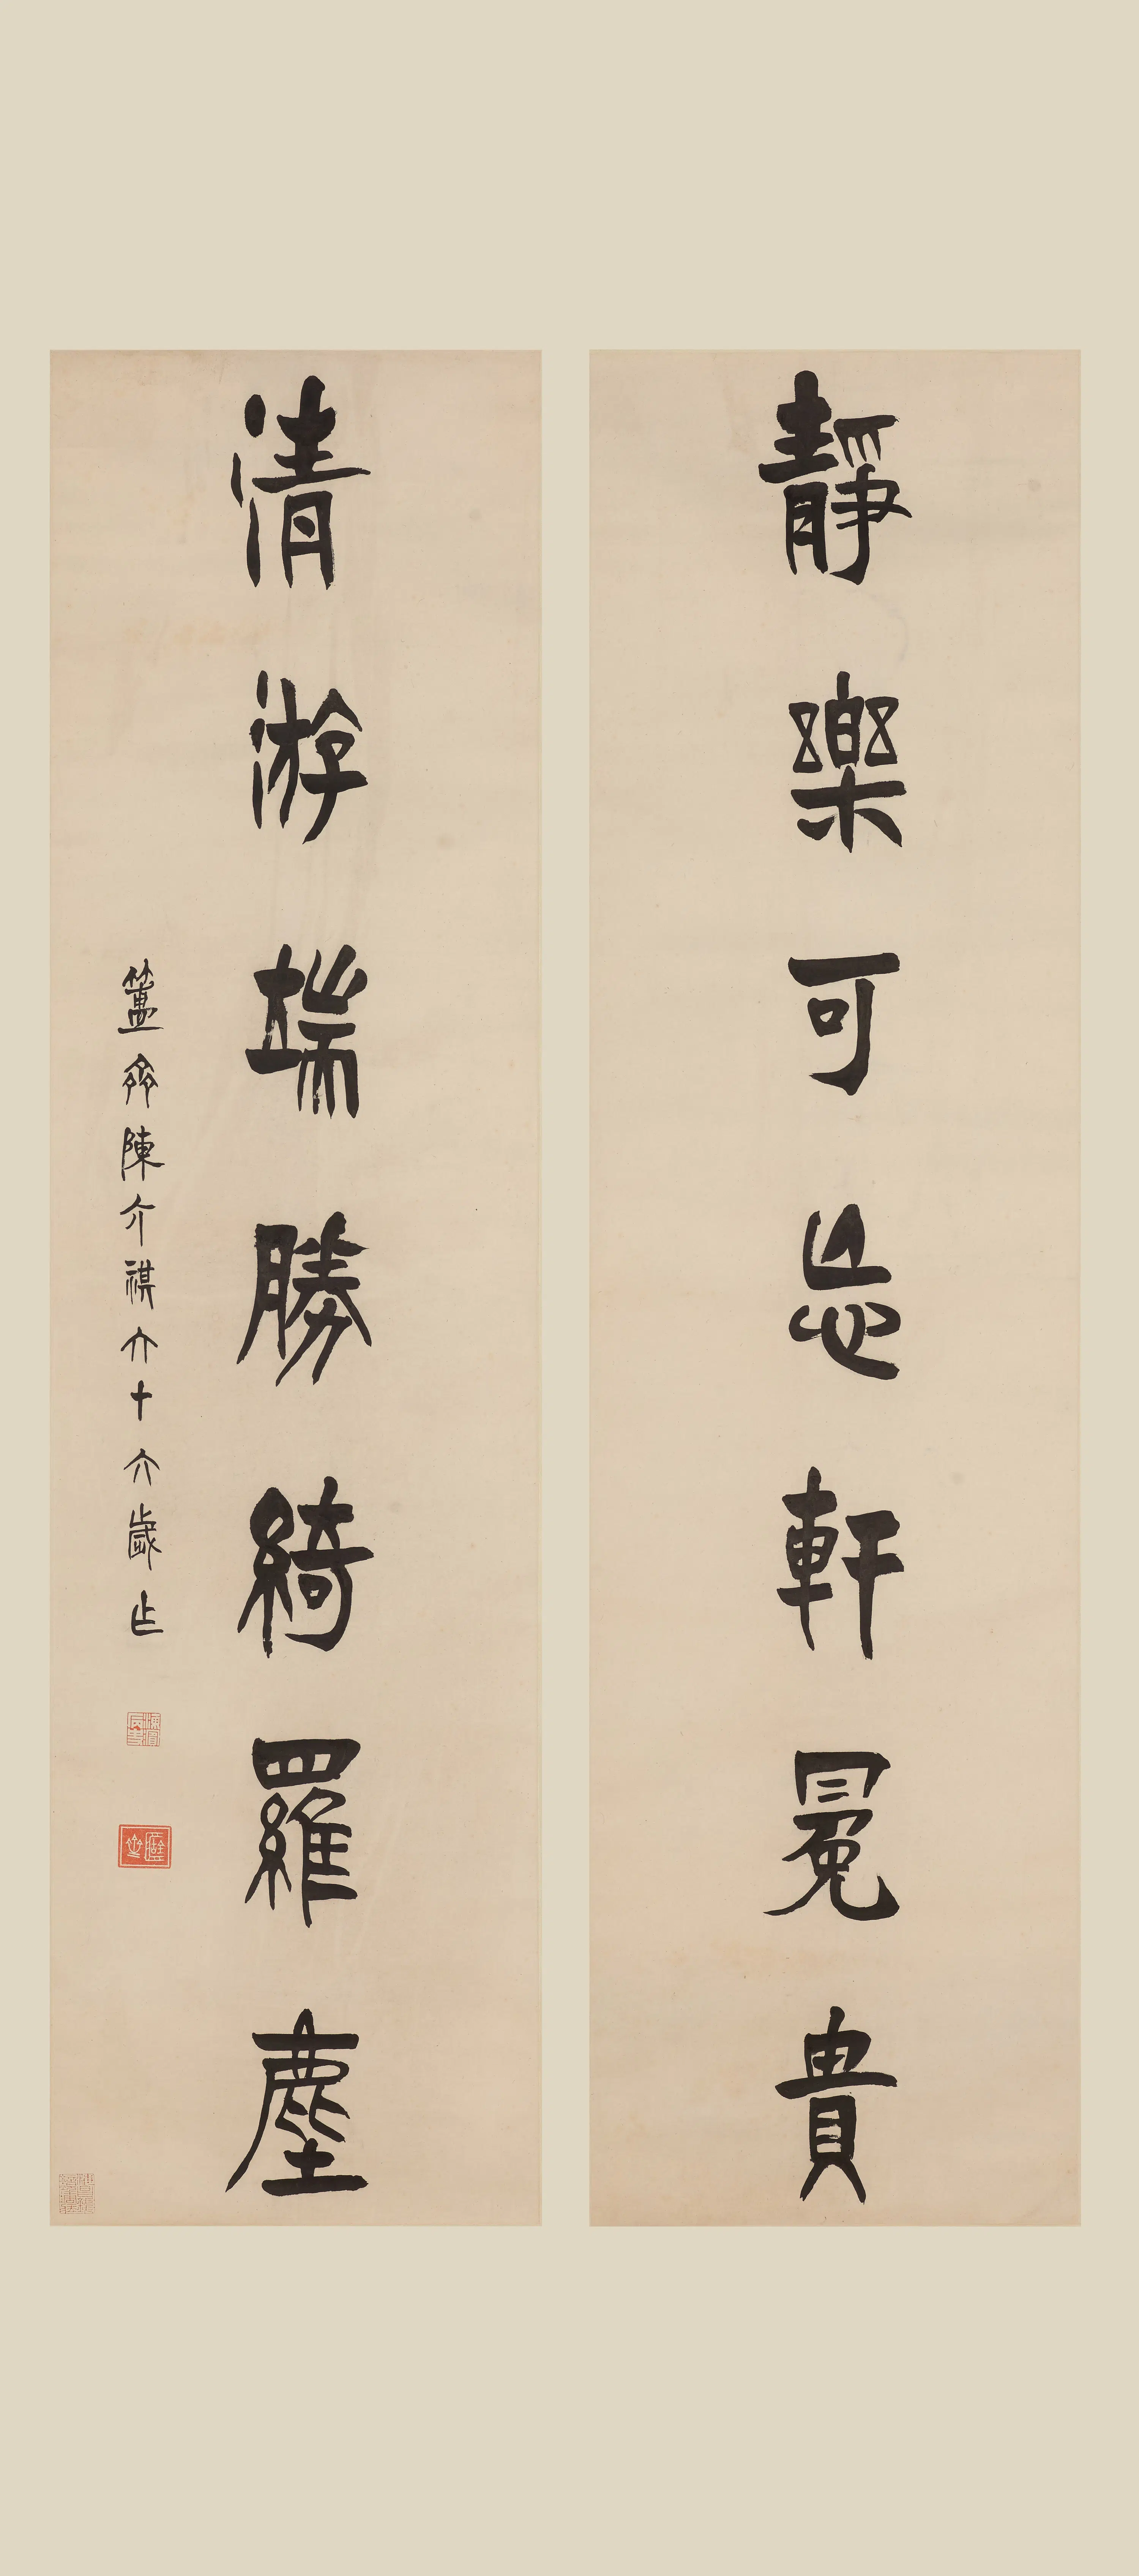 靜樂可忘軒冕貴
清游端勝綺羅塵
簠齋陳介祺六十六歲作